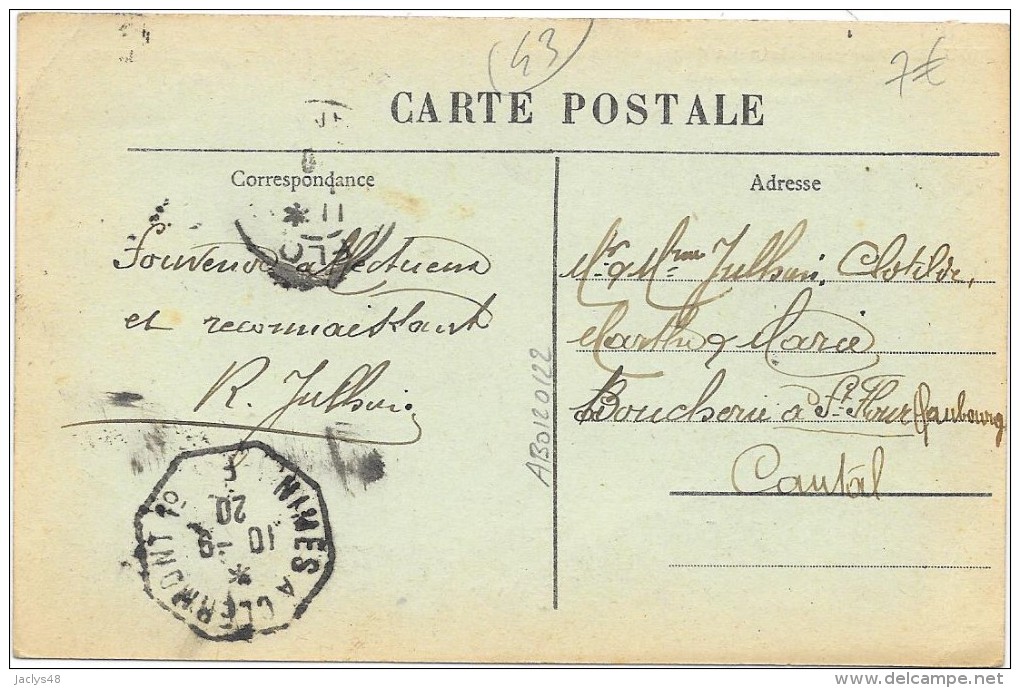 (43)
7€
CARTE POSTALE
Correspondance
Adresse
Souvenir affectueux
et reconnaissant
R. Julhien
Mr & Mme Julhien, Clotilde,
Marthe & Marie
Boucherie à St Flour faubourg
Cantal
AB0120122
FLO
11
NIMES A CLERMONT 1o
10
20
*
Jaclys48
www.delcampe.net